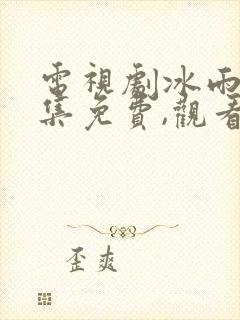 電視劇冰雨
集免費,觀看
歪爽